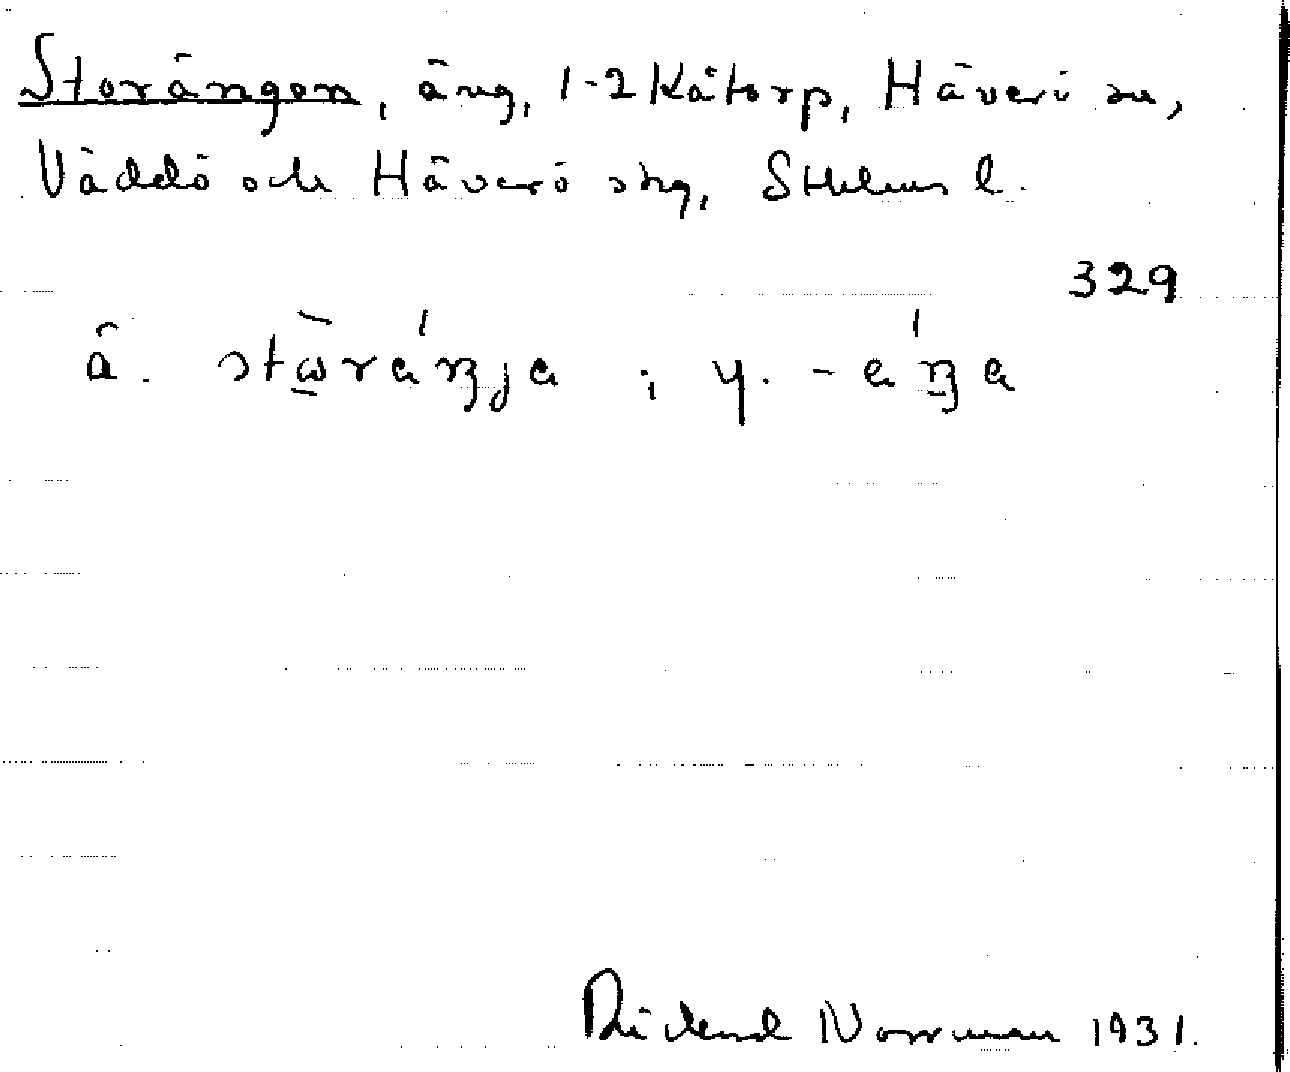 Storängen, äng, 1-2 Kåtorp, Häverö sn,
Väddö och Häverö skg, Sthlms l.
329
ä. stὼ̲ráŋja ; y. -áŋa
Rickard Norrman 1931.